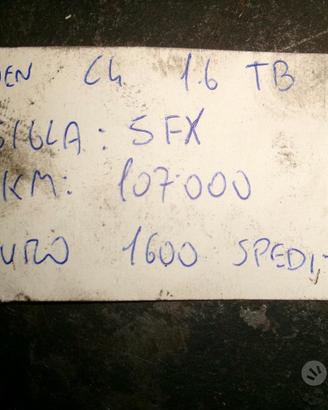 EN C4 1.6 TB
SIGLA: 5FX
KM: 107.000
EURO 1600 SPEDIT